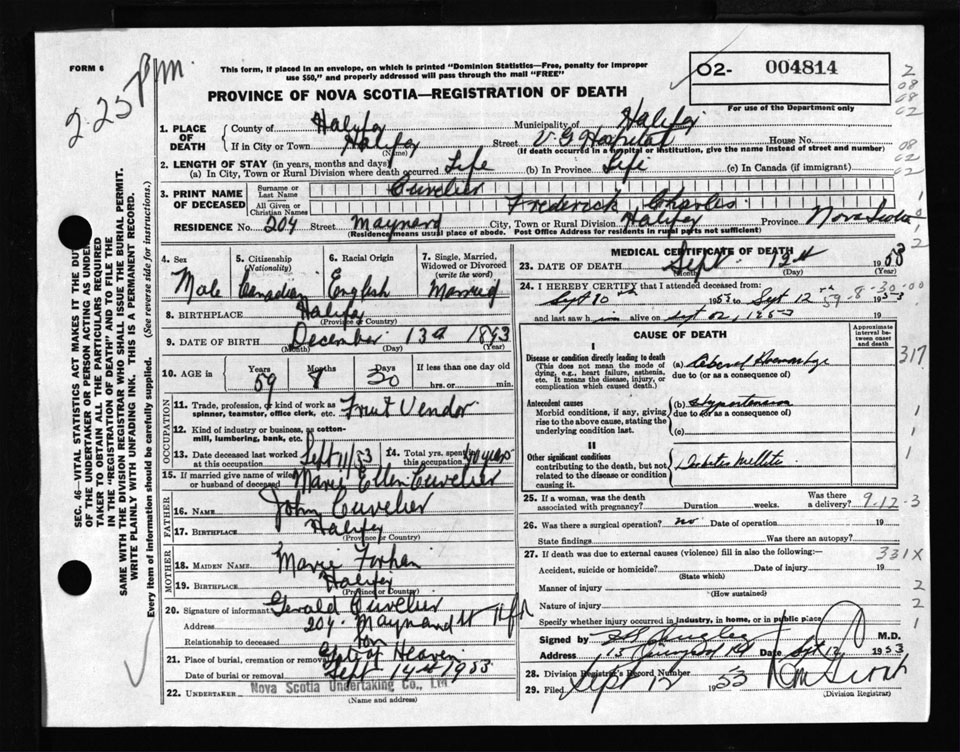 FORM 6
2.25 pm
This form, if placed in an envelope, on which is printed "Dominion Statistics—Free, penalty for improper
use $50," and properly addressed will pass through the mail "FREE"
PROVINCE OF NOVA SCOTIA—REGISTRATION OF DEATH
02- 004814
For use of the Department only
1. PLACE OF DEATH
County of Halifax Municipality of Halifax
If in City or Town Halifax Street V G Hospital House No.
(Name) (If death occurred in a hospital or institution, give the name instead of street and number)
2. LENGTH OF STAY (in years, months and days)
(a) In City, Town or Rural Division where death occurred Life (b) In Province Life (c) In Canada (if immigrant)
3. PRINT NAME OF DECEASED
Surname or Last Name Cuvelier
All Given or Christian Names Frederick Charles
RESIDENCE No. 204 Street Maynard City, Town or Rural Division Halifax Province Nova Scotia
(Residence means usual place of abode. Post Office Address for residents in rural parts not sufficient)
4. Sex
Male
5. Citizenship
(Nationality)
Canadian
6. Racial Origin
English
7. Single, Married,
Widowed or Divorced
(write the word)
Married
8. BIRTHPLACE Halifax
(Province or Country)
9. DATE OF BIRTH December 13 1893
(Month) (Day) (Year)
10. AGE in
Years Months Days If less than one day old
59 8 30 hrs. or min.
OCCUPATION
11. Trade, profession, or kind of work as
spinner, teamster, office clerk, etc. Fruit Vendor
12. Kind of industry or business, as cotton-
mill, lumbering, bank, etc.
13. Date deceased last worked
at this occupation Sept 11/53
14. Total yrs. spent
this occupation 40 years
15. If married give name of wife
or husband of deceased Marie Ellen Cuvelier
FATHER
16. NAME John Cuvelier
17. BIRTHPLACE Halifax
(Province or Country)
MOTHER
18. MAIDEN NAME Marie Forhan
19. BIRTHPLACE Halifax
(Province or Country)
20. Signature of informant Gerald Cuvelier
Address 204 Maynard St Hfx
Relationship to deceased son
21. Place of burial, cremation or removal Gate of Heaven
Date of burial or removal Sept 14th 1953
22. UNDERTAKER Nova Scotia Undertaking Co., Ltd
(Name and address)
MEDICAL CERTIFICATE OF DEATH
23. DATE OF DEATH Sept. 12th 1953
(Month) (Day) (Year)
24. I HEREBY CERTIFY that I attended deceased from:
Sept 10th 1953 to Sept 12th 1953
59-8-30-00
and last saw him alive on Sept 1953
CAUSE OF DEATH
Approximate
interval be-
tween onset
and death
I
Disease or condition directly leading to death
(This does not mean the mode of
dying, e.g., heart failure, asthenia,
etc. It means the disease, injury, or
complication which caused death.)
(a) Cerebral Haemorrhage
due to (or as a consequence of)
Antecedent causes
Morbid conditions, if any, giving
rise to the above cause, stating the
underlying condition last.
(b) Hypertension
due to (or as a consequence of)
(c)
II
Other significant conditions
contributing to the death, but not
related to the disease or condition
causing it.
Diabetes Mellitis
317
25. If a woman, was the death
associated with pregnancy? Duration weeks. Was there
a delivery?
9-12-3
26. Was there a surgical operation? no Date of operation 19
State findings Was there an autopsy?
27. If death was due to external causes (violence) fill in also the following:—
331X
Accident, suicide or homicide? Date of injury 19
(State which)
Manner of injury
(How sustained)
Nature of injury
Specify whether injury occurred in industry, in home, or in public place
Signed by M.D.
Address Date Sept 12, 1953
28. Division Registrar's Record Number
29. Filed Sept 12 1953
(Division Registrar)
SEC. 46—VITAL STATISTICS ACT MAKES IT THE DUTY
OF THE UNDERTAKER OR PERSON ACTING AS UNDER-
TAKER TO OBTAIN ALL THE PARTICULARS REQUIRED
IN THE "REGISTRATION OF DEATH" AND TO FILE THE
SAME WITH THE DIVISION REGISTRAR WHO SHALL ISSUE THE BURIAL PERMIT.
WRITE PLAINLY WITH UNFADING INK. THIS IS A PERMANENT RECORD.
Every item of information should be carefully supplied. (See reverse side for instructions.)